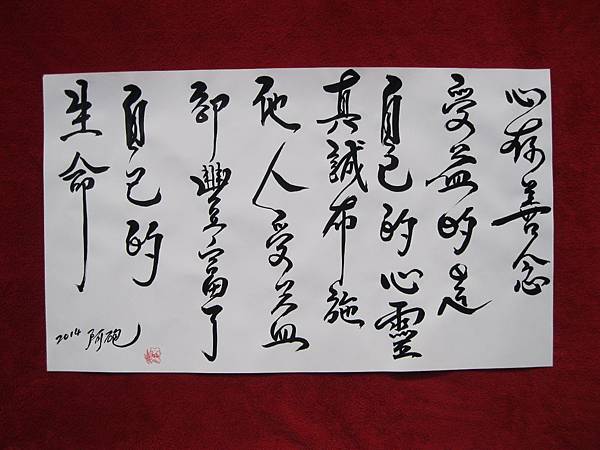 心存善念
受益的是
自己的心靈
真誠布施
他人受益
卻豐富了
自己的
生命
2014 阿砲